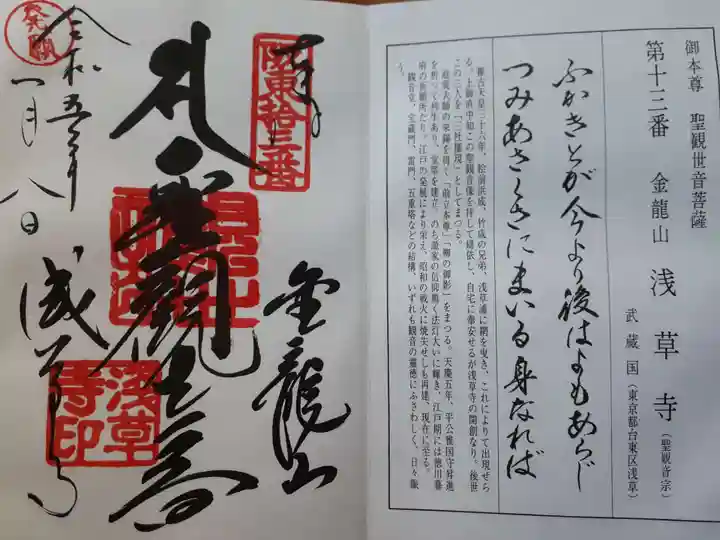 御本尊 聖観世音菩薩
第十三番 金龍山 浅草寺（聖観音宗）
武蔵国（東京都台東区浅草）
ふかきとが今より後はよもあらじ
つみあさくさにまいる身なれば
推古天皇三十六年、桧前浜成、竹成の兄弟、浅草浦に網を曳き、これによりて出現せら
る。土師直中知この聖観音像を拝して帰依し、自宅に奉安せるが浅草寺の開創なり。後世
この三人を「三社権現」としてまつる。
観音堂、宝蔵門、雷門、五重塔などの結構、いずれも観音の霊徳にふさわしく、日々賑
う。
奉拝
坂東拾三番
金龍山
聖観世音
浅草寺
浅草寺印
令和五年
一月八日
発願